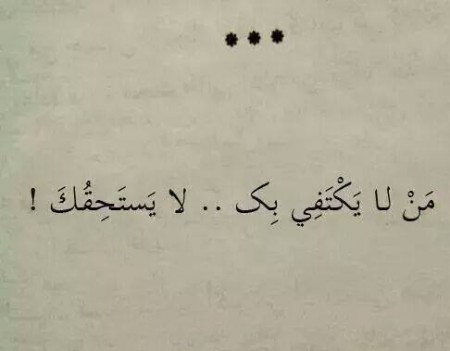 ***
مَنْ لا يَكْتَفِي بِكَ .. لا يَستَحِقُكَ !